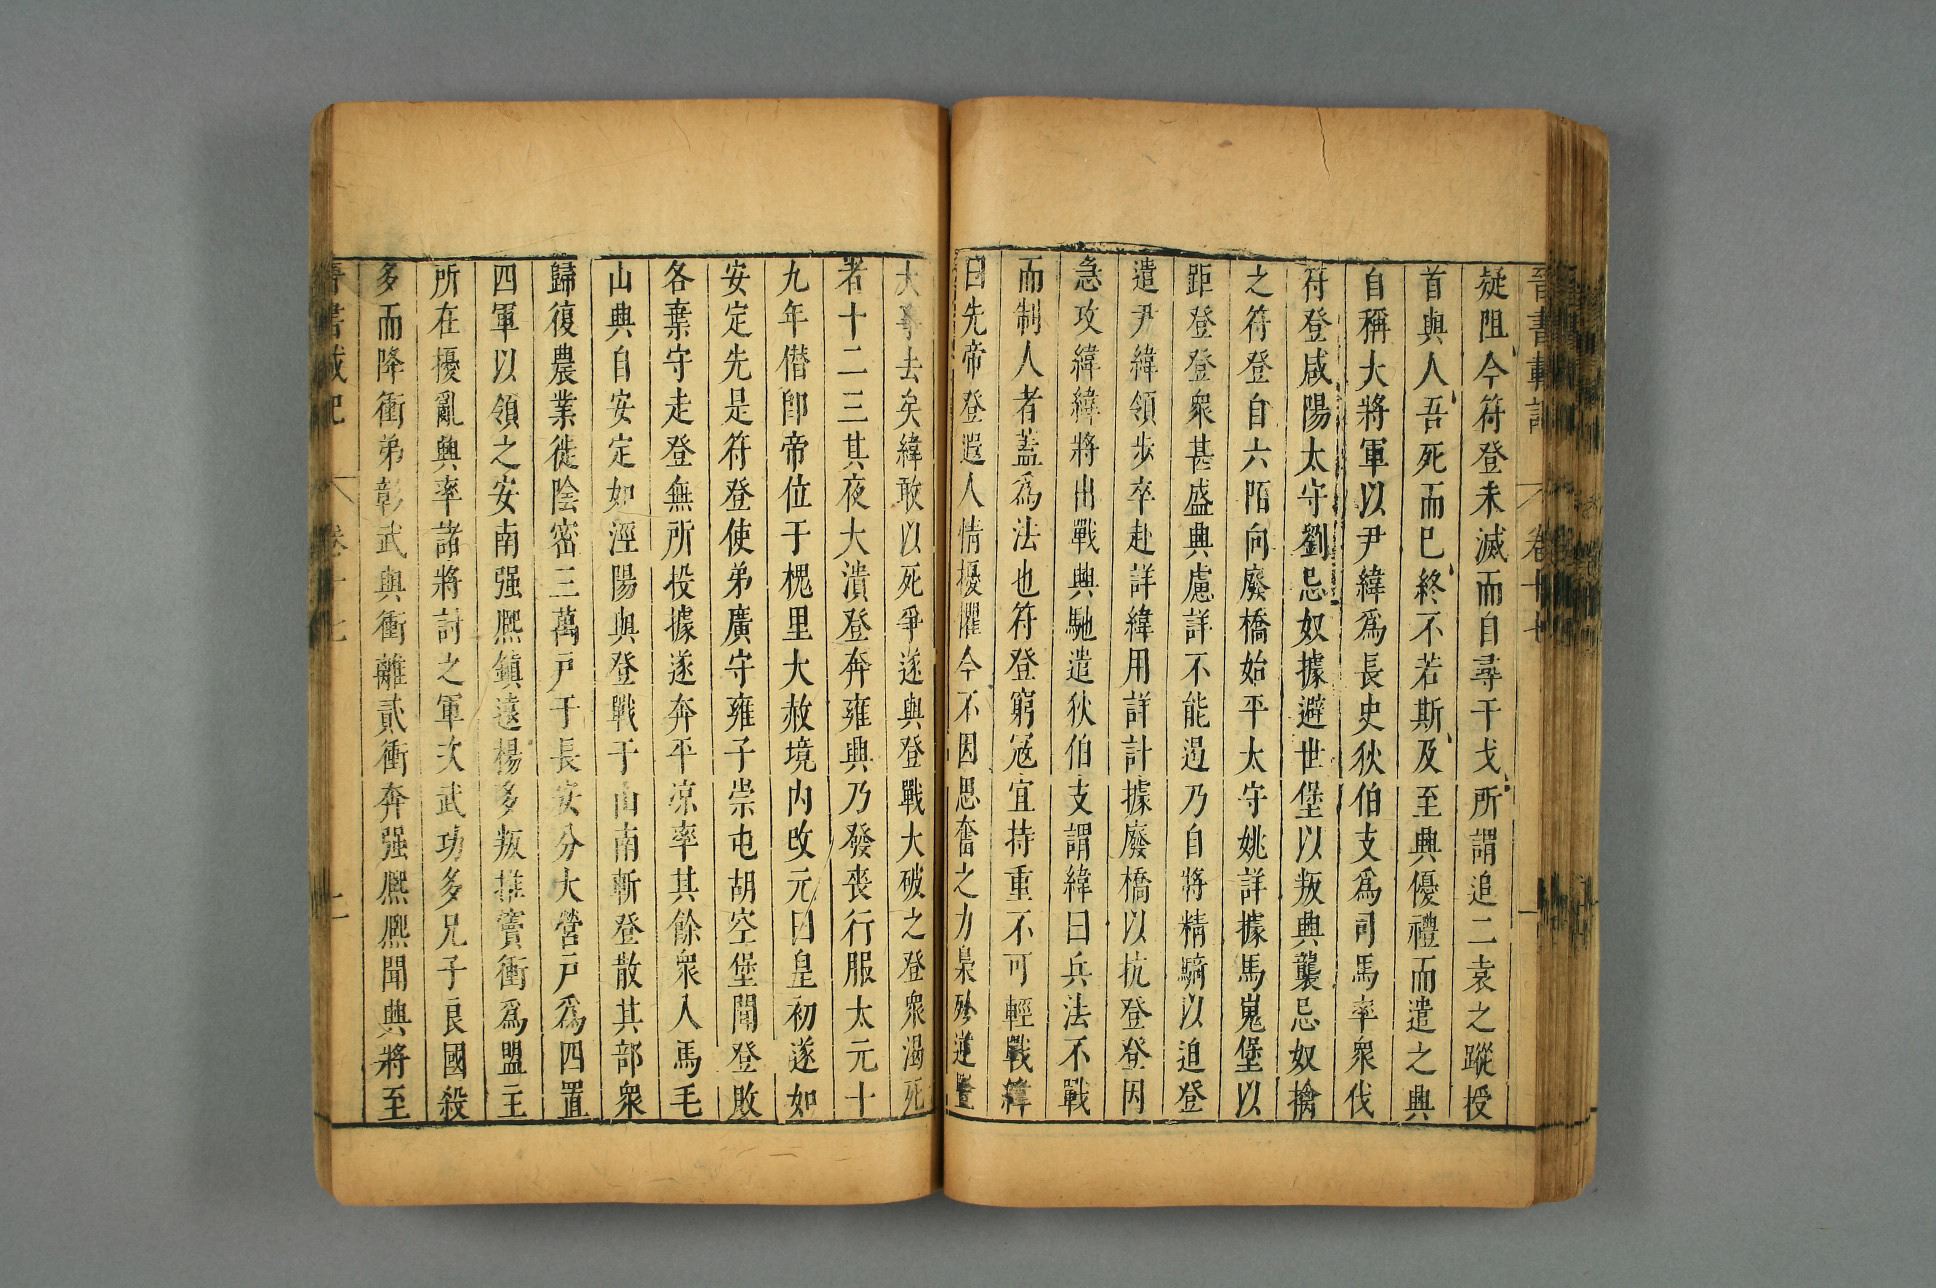 晉書載記 卷十七 一
疑阻今符登未滅而自尋干戈所謂追二袁之蹤授
首與人吾死而已終不若斯及至興優禮而遣之興
自稱大將軍以尹緯爲長史狄伯支爲司馬率衆伐
符登咸陽太守劉忌奴據避世堡以叛興襲忌奴擒
之符登自六陌向廢橋始平太守姚詳據馬嵬堡以
距登登衆甚盛興慮詳不能遏乃自將精騎以迫登
遣尹緯領步卒赴詳緯用詳計據廢橋以抗登登因
急攻緯緯將出戰興馳遣狄伯支謂緯曰兵法不戰
而制人者蓋爲法也符登窮寇宜持重不可輕戰緯
曰先帝登遐人情擾懼今不因思奮之力梟殄逆豎
大事去矣緯敢以死爭遂與登戰大破之登衆渴死
者十二三其夜大潰登奔雍興乃發喪行服太元十
九年僣卽帝位于槐里大赦境内改元曰皇初遂如
安定先是符登使弟廣守雍子崇屯胡空堡聞登敗
各棄守走登無所投據遂奔平凉率其餘衆入馬毛
山興自安定如涇陽與登戰于山南斬登散其部衆
歸復農業徙陰密三萬戶于長安分大營戶爲四置
四軍以領之安南强熈鎮遠楊多叛推竇衝爲盟主
所在擾亂興率諸將討之軍次武功多兄子良國殺
多而降衝弟彰武與衝離貳衝奔强熈熈聞興將至
晉書載記 卷十七 二